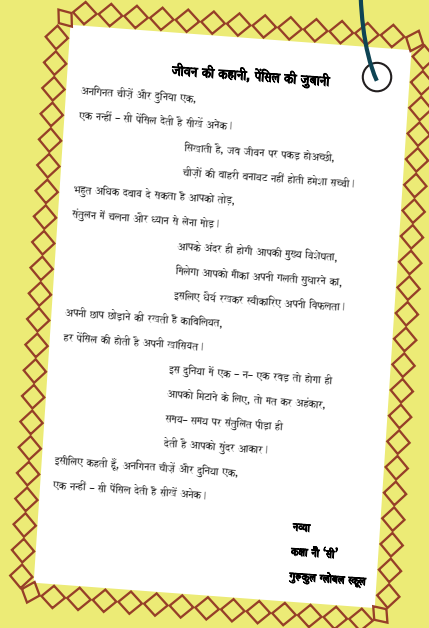 जीवन की कहानी, पेंसिल की जुबानी
अनगिनत चीज़ें और दुनिया एक,
एक नन्हीं – सी पेंसिल देती है सीखें अनेक।
सिखाती है, जब जीवन पर पकड़ होअच्छी,
चीज़ों की बाहरी बनावट नहीं होती हमेशा सच्ची।
भहुत अधिक दबाव दे सकता है आपको तोड़,
संतुलन में चलना और ध्यान से लेना मोड़।
आपके अंदर ही होगी आपकी मुख्य विशेषता,
मिलेगा आपको मौका अपनी गलती सुधारने का,
इसलिए धैर्य रखकर स्वीकारिए अपनी विफलता।
अपनी छाप छोड़ाने की रखती है काबिलियत,
हर पेंसिल की होती है अपनी खासियत।
इस दुनिया में एक – न– एक रबड़ तो होगा ही
आपको मिटाने के लिए, तो मत कर अहंकार,
समय– समय पर संतुलित पीड़ा ही
देती है आपको सुंदर आकार।
इसीलिए कहती हूँ, अनगिनत चीज़ें और दुनिया एक,
एक नन्हीं – सी पेंसिल देती है सीखें अनेक।
नव्या
कक्षा नौ ‘सी’
गुरुकुल ग्लोबल स्कूल